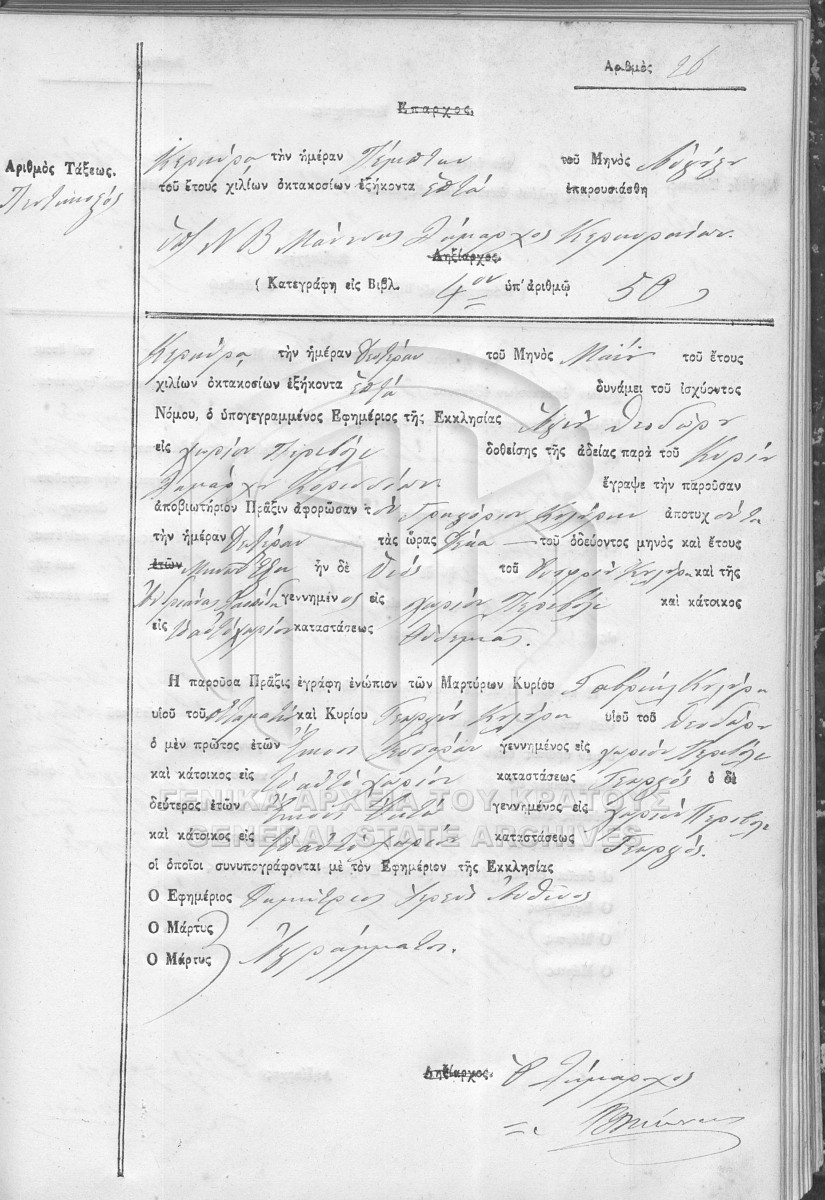 Αριθμὸς 26
Ἔπαρχος.
Αριθμὸς Τάξεως.
Κερκύρᾳ τὴν ἡμέραν Πέμπτην τοῦ Μηνὸς
τοῦ ἔτους χιλίων ὀκτακοσίων ἐξήκοντα ἑπτὰ ἐπαρουσιάσθη
Ν Β Μάνεσης Δήμαρχος Κερκυραίων.
Ληξίαρχος.
(Κατεγράφη εἰς Βιβλ. 4ον ὑπ' ἀριθμῷ 50
Κερκύρᾳ τὴν ἡμέραν Δευτέραν τοῦ Μηνὸς Μαΐου τοῦ ἔτους
χιλίων ὀκτακοσίων ἐξήκοντα ἑπτὰ δυνάμει τοῦ ἰσχύοντος
Νόμου, ὁ ὑπογεγραμμένος Ἐφημέριος τῆς Ἐκκλησίας Ἁγίου Θεοδώρου
εἰς χωρίον Περιβόλι δοθείσης τῆς ἀδείας παρὰ τοῦ Κυρίου
Δημάρχου ἔγραψε τὴν παροῦσαν
ἀποβιωτήριον Πρᾶξιν ἀφορῶσαν τὸν Γρηγόριον ἀποτυχόντα
τὴν ἡμέραν Δευτέραν τὰς ὥρας Δέκα τοῦ ὁδεύοντος μηνὸς καὶ ἔτους
ἐτῶν Μηνῶν Ἕξη ἦν δὲ Υἱὸς τοῦ καὶ τῆς
γεννημένος εἰς χωρίον Περιβόλι καὶ κάτοικος
εἰς τὸ αὐτὸ χωρίον καταστάσεως Οὐδεμιᾶς.
Ἡ παροῦσα Πρᾶξις ἐγράφη ἐνώπιον τῶν Μαρτύρων Κυρίου Γαβριὴλ
υἱοῦ τοῦ Σταματίου καὶ Κυρίου Γεωργίου υἱοῦ τοῦ Θεοδώρου
ὁ μὲν πρῶτος ἐτῶν Εἴκοσι Τεσσάρων γεννημένος εἰς χωρίον Περιβόλι
καὶ κάτοικος εἰς τὸ αὐτὸ χωρίον καταστάσεως Γεωργὸς ὁ δὲ
δεύτερος ἐτῶν Εἴκοσι Ὀκτὼ γεννημένος εἰς χωρίον Περιβόλι
καὶ κάτοικος εἰς τὸ αὐτὸ χωρίον καταστάσεως Γεωργός.
οἱ ὁποῖοι συνυπογράφονται μὲ τὸν Ἐφημέριον τῆς Ἐκκλησίας
Ὁ Ἐφημέριος Δημήτριος Ἱερεὺς
Ὁ Μάρτυς
Ὁ Μάρτυς Ἀγράμματοι.
Ληξίαρχος. Ὁ Δήμαρχος
ΓΕΝΙΚΑ ΑΡΧΕΙΑ ΤΟΥ ΚΡΑΤΟΥΣ
GENERAL STATE ARCHIVES